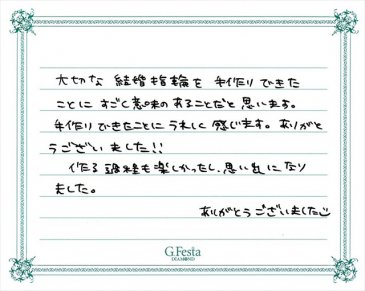 大切な 結婚指輪を 手作りできた
ことに すごく意味のあることだと思います。
手作りできたことにうれしく感じます。ありがと
うございました!!
作る過程も楽しかったし、思い出になり
ました。
ありがとうございました
G.Festa
DIAMOND